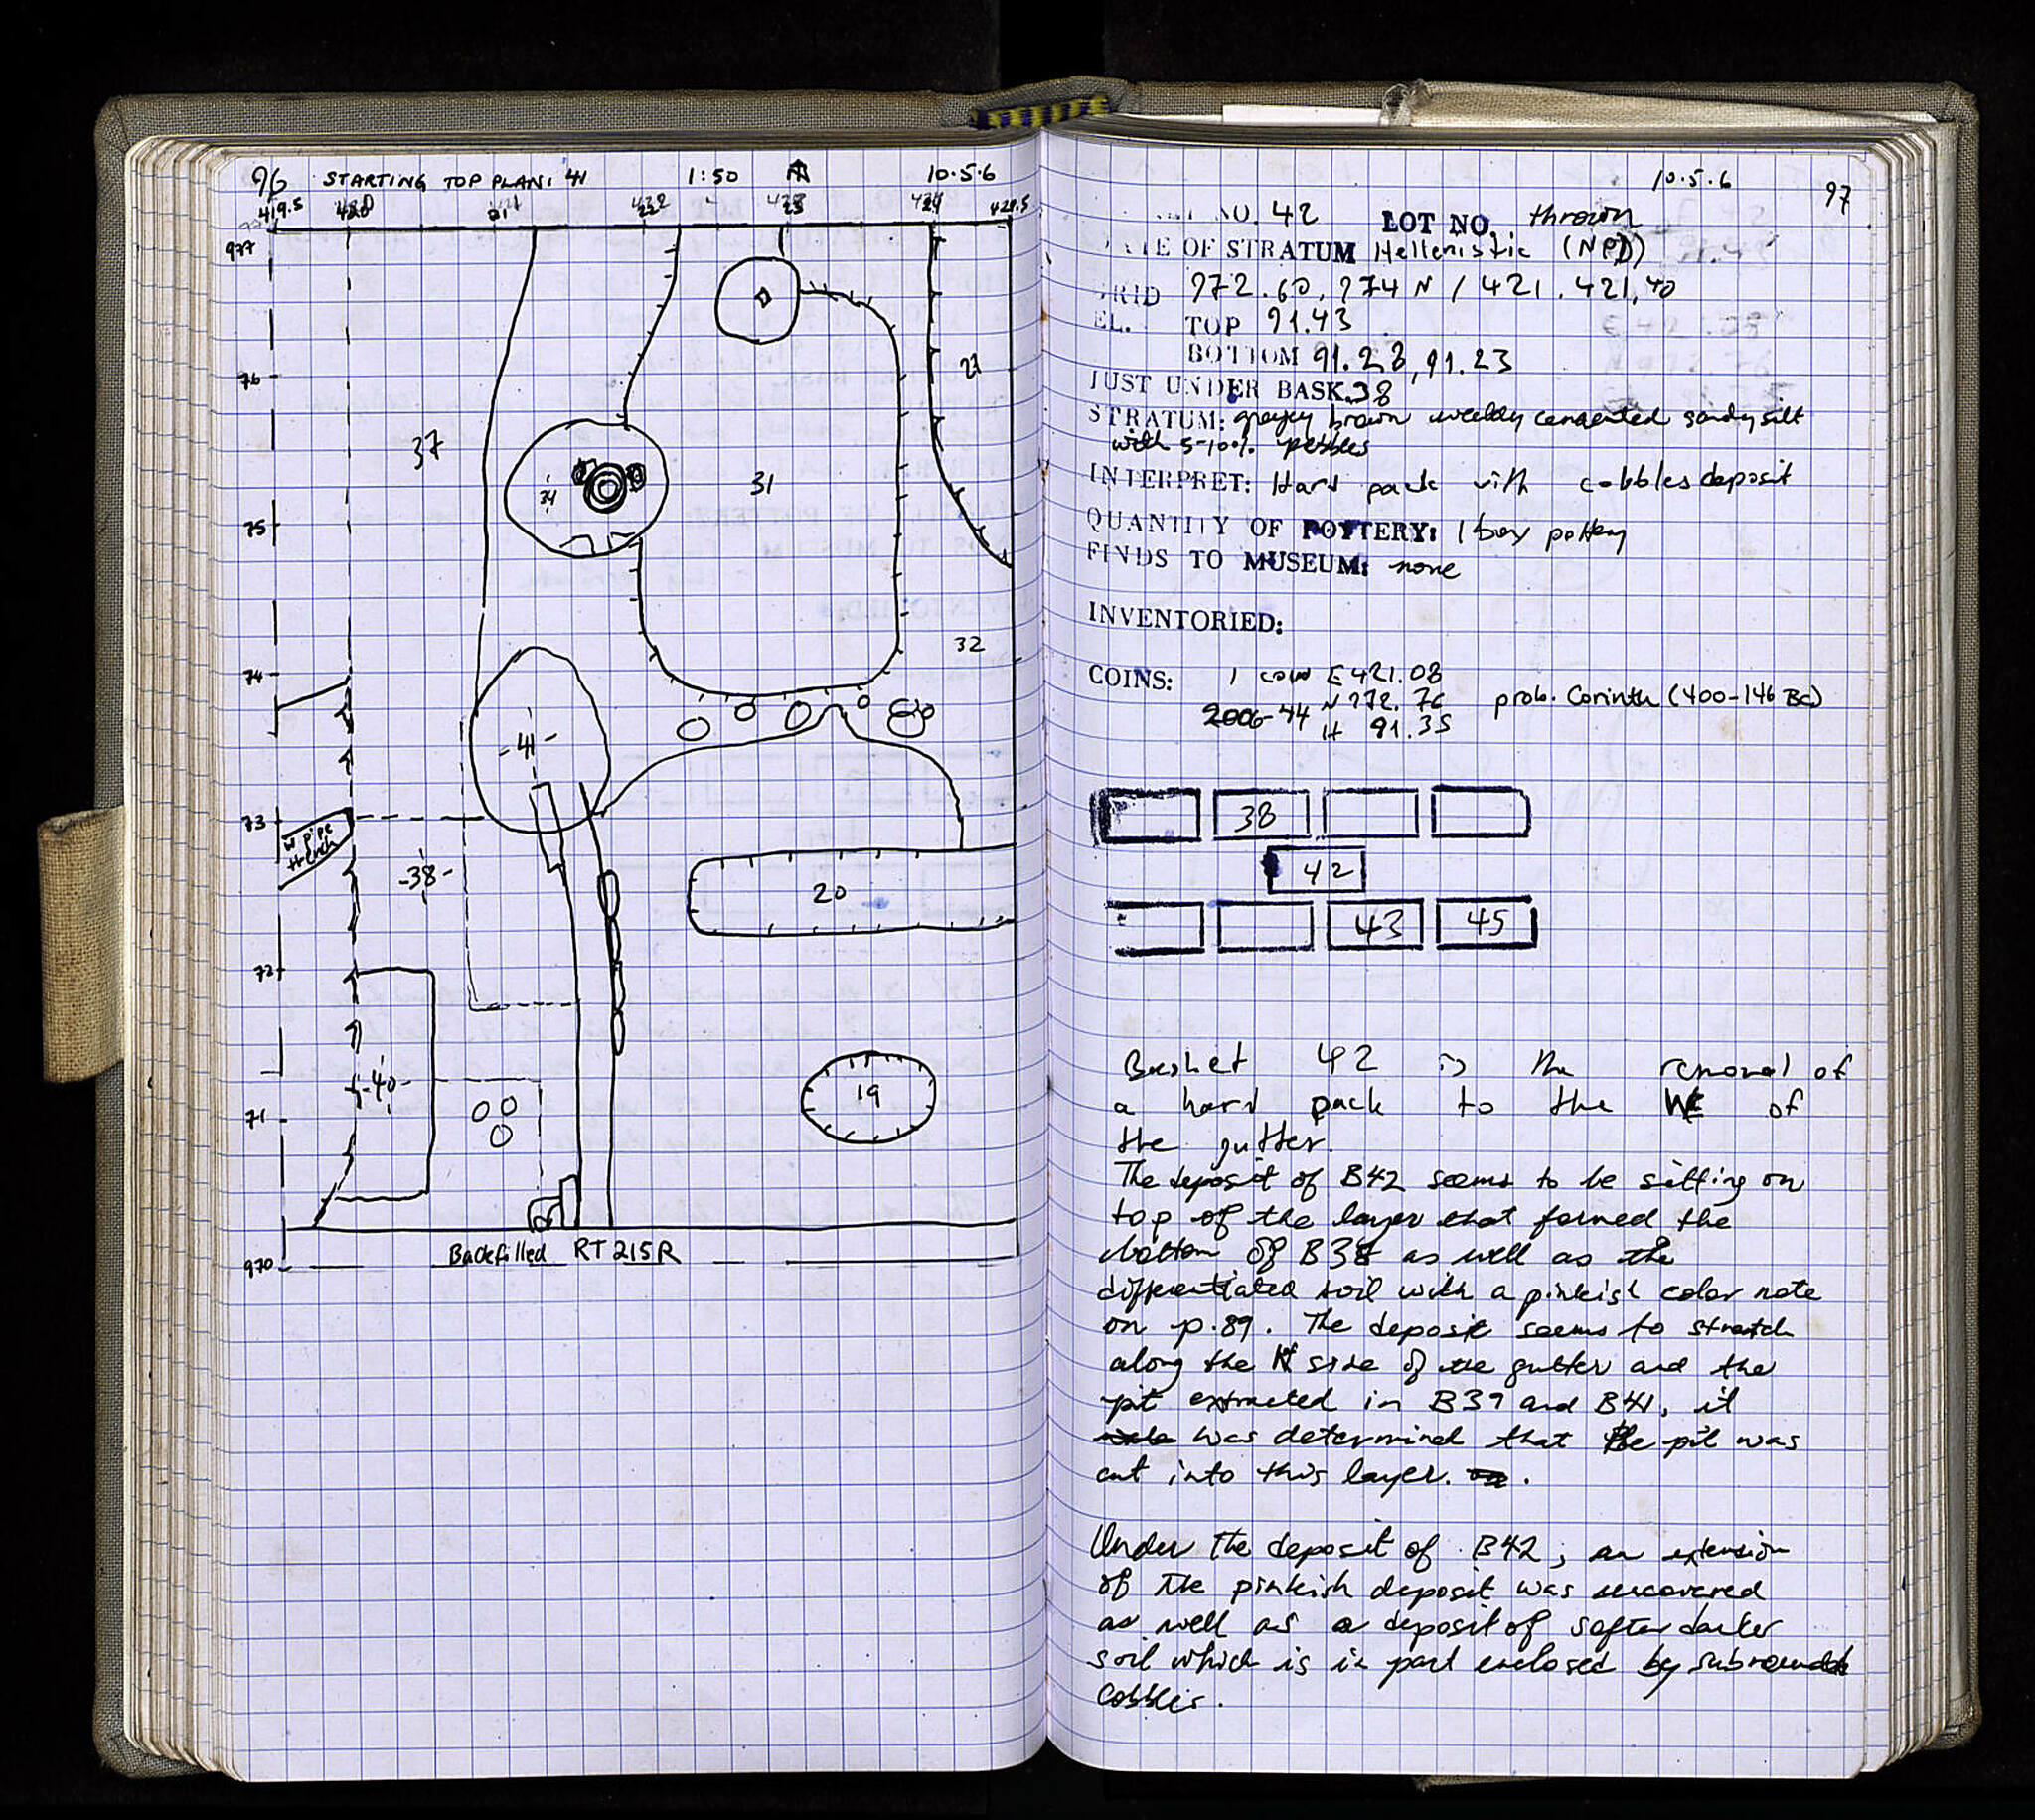 96 STARTING TOP PLAN: 41 1:50 10.5.6
419.5 420 421 422 423 424 424.5
977
76
75
74
73
72
71
970
37
34
31
21
32
-41-
W pipe trench
-38-
20
-40-
19
Backfilled RT 215R
10.5.6 97
NO. 42 LOT NO. thrown
DATE OF STRATUM Hellenistic (NPD)
GRID 972.60, 974 N / 421, 421,40
EL. TOP 91.43
BOTTOM 91.28, 91.23
JUST UNDER BASK. 38
STRATUM: greyey brown weakly cemented sandy silt
with 5-10% pebbles
INTERPRET: Hard pack with cobbles deposit
QUANTITY OF POTTERY: 1 box pottery
FINDS TO MUSEUM: none
INVENTORIED:
COINS: 1 coin E 421.08
2006-44 N 972.76 prob. Corinth (400-146 BC)
H 91.35
38
42
43 45
Basket 42 is the removal of
a hard pack to the W of
the gutter.
The deposit of B42 seems to be sitting on
top of the layer that formed the
bottom of B38 as well as the
differentiated soil with a pinkish color note
on p.89. The deposit seems to stretch
along the side of the gutter and the
pit extracted in B39 and B41, it
was determined that the pit was
cut into this layer.
Under the deposit of B42, an extension
of the pinkish deposit was uncovered
as well as a deposit of softer darker
soil which is in part enclosed by subrounded
cobbles.